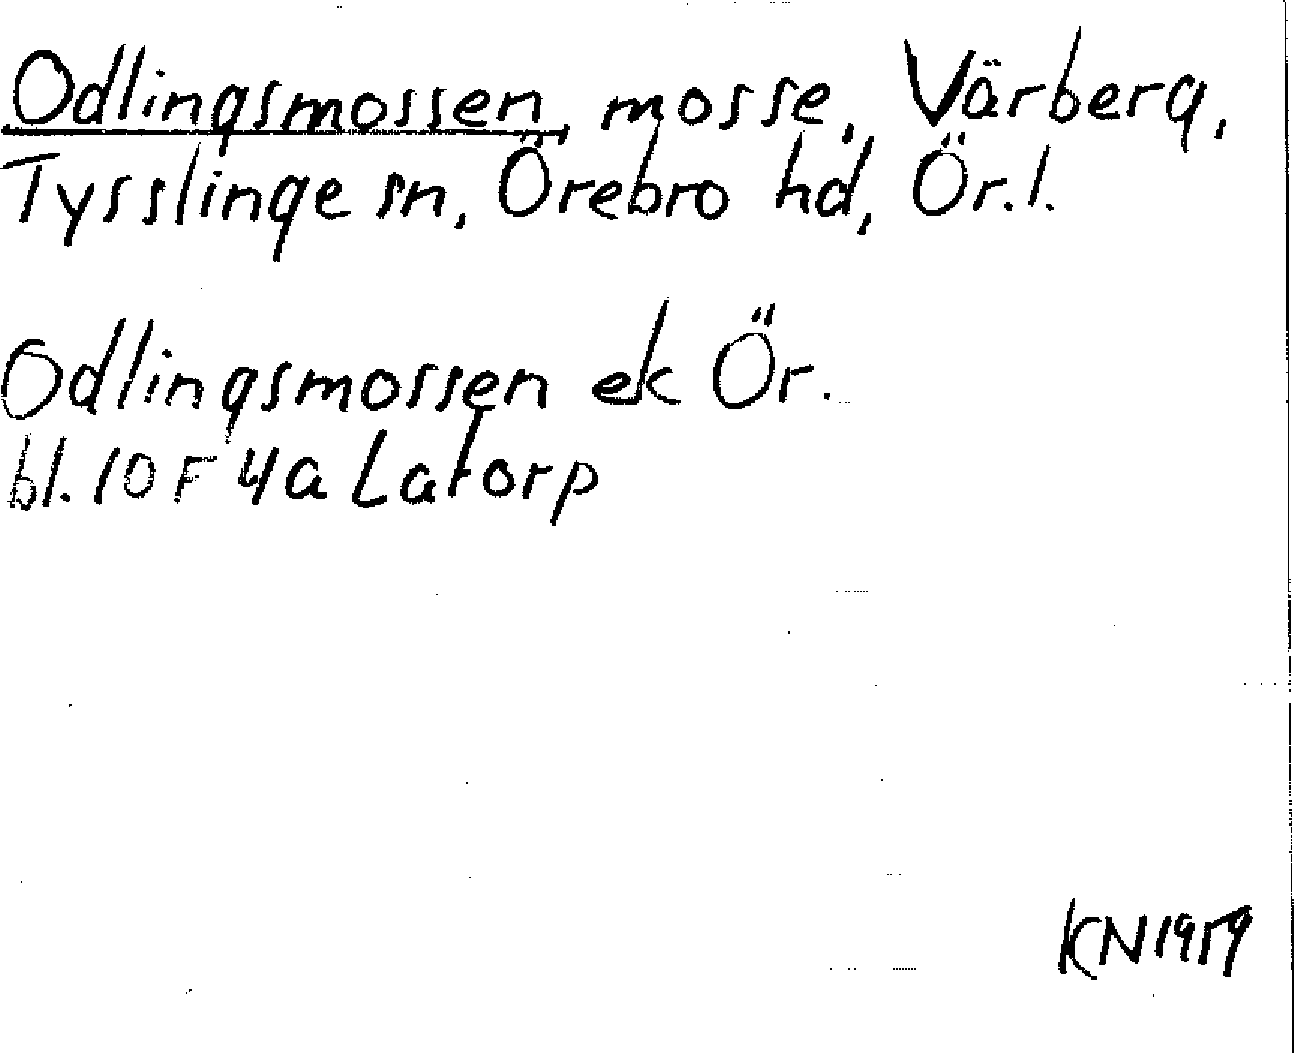 Odlingsmossen, mosse, Värberg,
Tysslinge sn, Örebro hd, Ör.l.
Odlingsmossen ek Ör.
bl. 10 F 4a Latorp
KN 1959